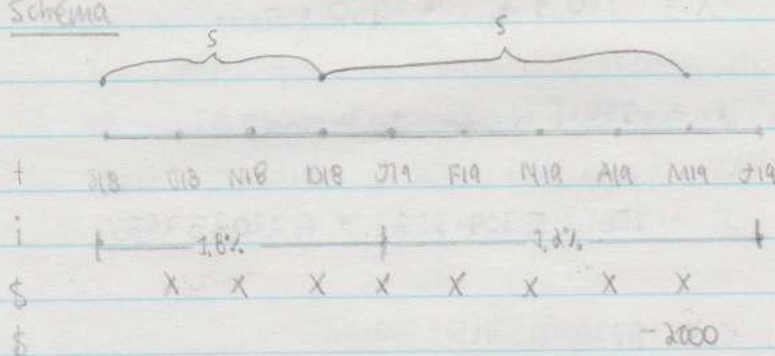 Schéma
S S
t S18 O18 N18 D18 J19 F19 M19 A19 M19 J19
i 1.8% 1,2%
$ X X X X X X X X
$ -2000